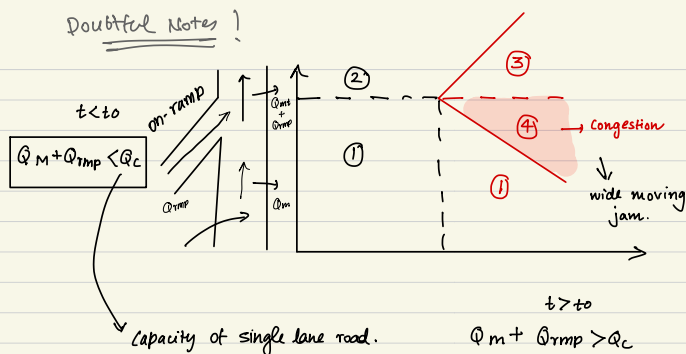 Doubtful Notes !
t<to
on-ramp
QM+Qrmp <Qc
Qrmp
Qmt
+
Qrmp
Qm
②
①
③
④
Congestion
①
wide moving
jam.
t>to
Capacity of single lane road.
Qm+ Qrmp >Qc